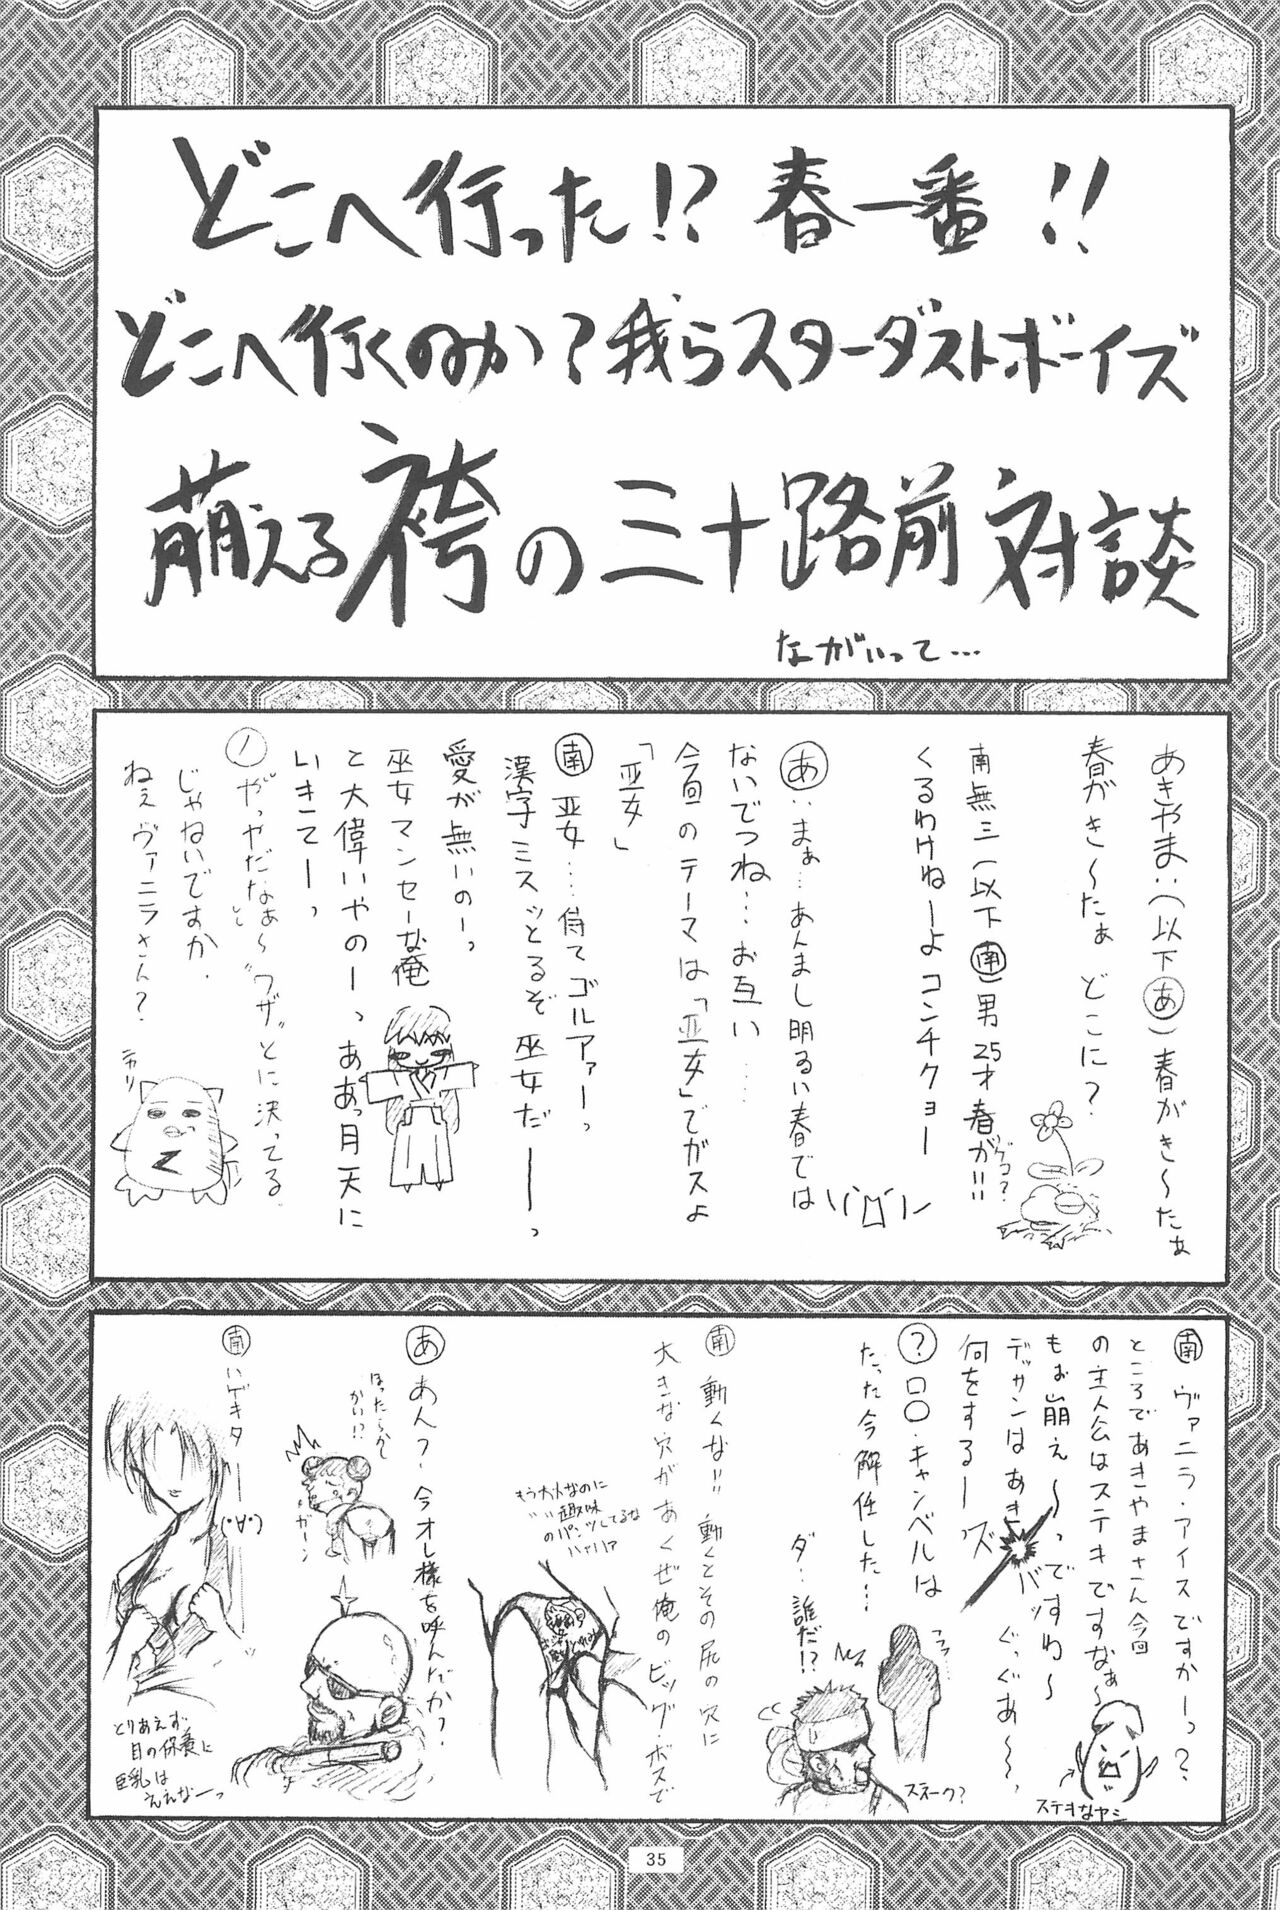 どこへ行った!? 春一番!!
どこへ行くのか?我らスターダストボーイズ
萌える袴の三十路前対談
ながいって…
あきやま‥(以下あ)春がき〜たぁ
春がき〜たぁ どこに?
南無三(以下南)男25才春が!!
くるわけねーよコンチクョー
ゲコ?
あ‥まぁ…あんまし明るい春では
ないでつね…お互い……
今回のテーマは「亚女」でガスよ
「亚女」
南 亚女…待てゴルアァーっ
漢字ミスっとるぞ 巫女だーーっ
愛が無いのーっ
巫女マンセーな俺
と大偉いやのーっ ああっ月天に
いきてーっ
ノ やっやだなぁ〜"ワザ"とに決ってる
じゃないですか、
ねぇヴァニラさん?
ニカリ
南 ヴァニラ・アイスですかーっ?
ところであきやまさん今回
の主人公はステキですなぁ〜
もぉ崩え〜っですわ〜
デッサンはあき
バッ
ぐっぐあ〜っ
何をするーっ
ズ
ステキなヤミ
? ロロ・キャンベルは
たった今解任した…
ダ…誰だ!?
スネーク?
南 動くな!! 動くとその尻の穴に
大きな穴があくぜ俺のビッグ・ボスで
もう大人なのに
趣味
のパンツしてるな
ハァハァ
あ あんっ…今オレ様を呼んだか?
ほったらかし
かい!?
ガーン
南 ハゲキターー
(・A・)
とりあえず
目の保養に
巨乳は
ええなーっ
35